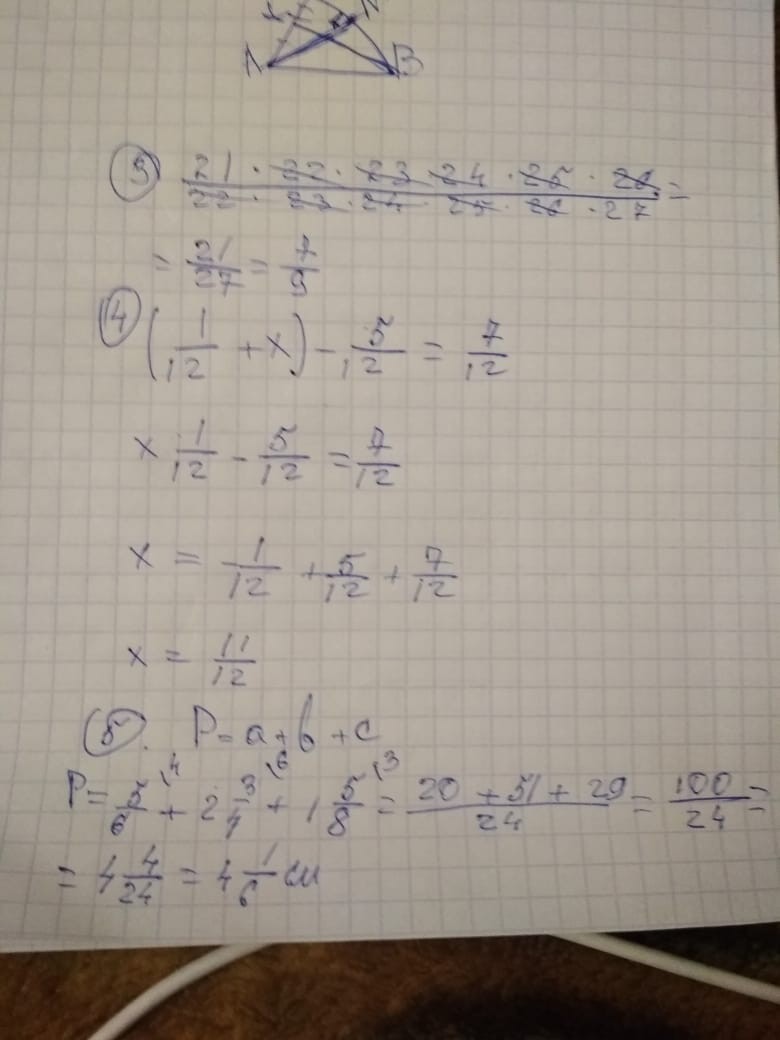 A B
3) (21 · 22 · 23 24 · 25 · 26) / (22 · 23 · 24 · 25 · 26 · 27) =
= 21/27 = 7/9
4) (1/12 + x) - 5/12 = 7/12
x 1/12 - 5/12 = 7/12
x = 1/12 + 5/12 + 7/12
x = 11/12
5). P = a + b + c
P = 5/6 \4 + 2 3/4 \6 + 1 5/8 \3 = (20 + 51 + 29)/24 = 100/24 =
= 4 4/24 = 4 1/6 см